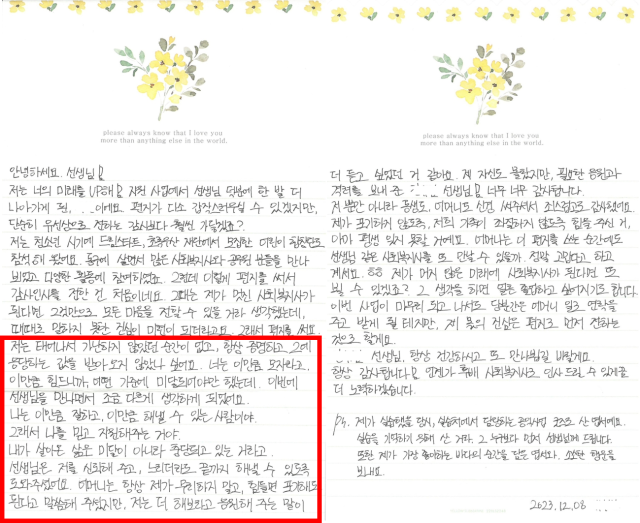 please always know that I love you
more than anything else in the world.
안녕하세요 선생님
저는 너의 미래를 UP해 지원 사업에서 선생님 덕분에 한 발 더
나아가게 된, 이에요. 편지가 다소 갑작스러우실 수 있겠지만,
단순히 유선상으로 전하는 감사보다 훨씬 가겠죠?
저는 청소년 시기에 드림스타트, 초록우산 재단에서 모집한 어린이
참석 했어요. 동구에 살면서 많은 사회복지사와 공무원 분들을 만나
뵈었고 다양한 활동에 참여하였죠. 그런데 이렇게 편지를 써서
감사인사를 전한 건 처음이네요. 그때는 제가 멋진 사회복지사가
된다면 그것만으로 모든 마음을 전할 수 있을 거라 생각했는데,
때때로 말하지 못한 진심이 미련이 되더라고요. 그래서 편지를 써요.
저는 태어나서 가난하지 않았던 순간이 없고, 항상 증명하고 그에
응당하는 값을 받아오지 않았나 싶어요. 나는 이만큼 모자라고,
이만큼 힘드니까, 어떤 기준에 미달되어야만 했는데. 이번에
선생님을 만나면서 조금 다르게 생각하게 되었어요.
나는 이만큼 잘하고, 이만큼 해낼 수 있는 사람이야.
그래서 나를 믿고 지원해주는 거야.
내가 살아온 삶은 미달이 아니라 충당되고 있는 거라고.
선생님은 저를 신뢰해 주고, 느리더라도 끝까지 해낼 수 있도록
도와주셨어요. 어머니는 항상 제가 무리하지 말고, 힘들면 포기해도
된다고 말씀해 주셨지만, 저는 더 해보라고 응원해 주는 말이
please always know that I love you
more than anything else in the world.
더 듣고 싶었던 것 같아요. 제 자신도 몰랐지만, 필요한 응원과
격려를 보내 준 선생님 너무 너무 감사합니다.
저 뿐만 아니라 동생도, 어머니도 신경 써주셔서 죄송하고 감사해요.
제가 포기하지 않도록, 저희 가족이 좌절하지 않도록 힘을 주신 거,
아마 평생 잊지 못할 거에요. 어머니는 더 편지를 쓰는 순간에도
선생님 같은 사회복지사를 또 만날 수 있을까, 정말 고맙다고 하고
계셔요. 제가 머지 않은 미래에 사회복지사가 된다면 또
뵐 수 있겠죠? 그 생각을 하면 얼른 졸업하고 싶어지기도 합니다.
이번 사업이 마무리 되고 나서도 당분간은 어머니 일로 연락을
주고 받게 될 테지만, 제 몫의 진심은 편지로 먼저 전하는
것으로 할게요.
선생님, 항상 건강하시고 또 만나뵙길 바랄게요.
항상 감사합니다 언젠가 동료 사회복지사로 인사 드릴 수 있게끔
더 노력하겠습니다.
P.S. 제가 실습했을 당시, 실습처에서 담당하는 굿즈로 산 엽서에요.
실습을 기념하기 위해 산 거라, 그 누구보다 먼저 선생님께 드립니다.
또한 제가 가장 좋아하는 바다의 순간을 담은 엽서라, 소소한 행운을
보내요.
2023.12.08